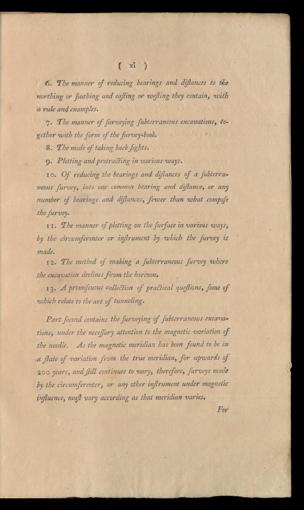 ( xi )
6. The manner of reducing bearings and distances to the
northing or southing and easting or westing they contain, with
a rule and examples.
7. The manner of surveying subterraneous excavations, to-
gether with the form of the survey-book.
8. The mode of taking back sights.
9. Plotting and protracting in various ways.
10. Of reducing the bearings and distances of a subterra-
neous survey, into one common bearing and distance, or any
number of bearings and distances, fewer than what compose
the survey.
11. The manner of plotting on the surface in various ways,
by the circumferenter or instrument by which the survey is
made.
12. The method of making a subterraneous survey where
the excavation declines from the horizon.
13. A promiscuous collection of practical questions, some of
which relate to the art of tunneling.
Part second contains the surveying of subterraneous excava-
tions, under the necessary attention to the magnetic variation of
the needle. As the magnetic meridian has been found to be in
a state of variation from the true meridian, for upwards of
200 years, and still continues to vary, therefore, surveys made
by the circumferenter, or any other instrument under magnetic
influence, must vary according as that meridian varies.
For